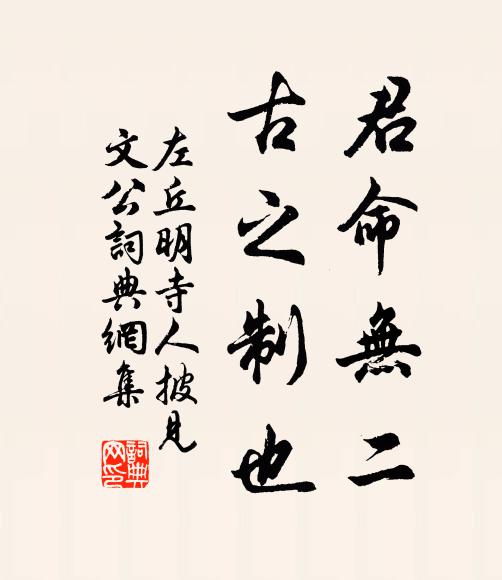 君命無二
古之制也
左丘明寺人披見
文公詞典網集
詞典
网印